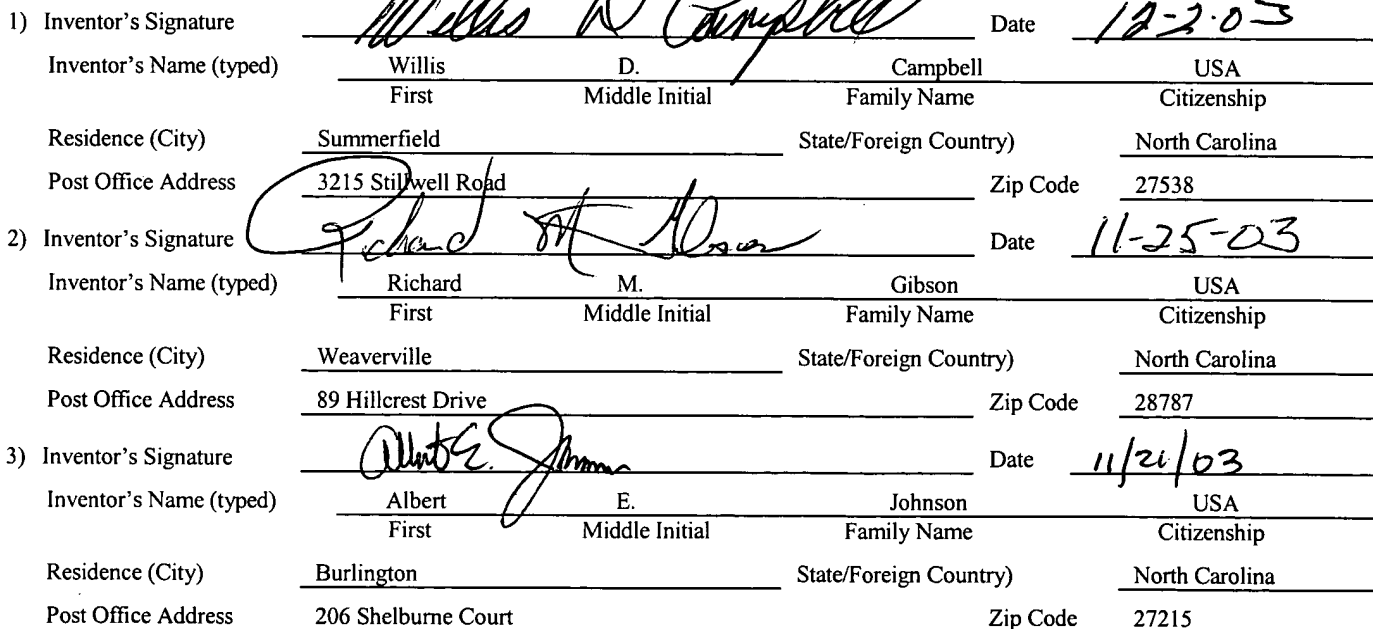 1) Inventor's Signature Willis D Campbell Date 12-2-03
Inventor's Name (typed) Willis D. Campbell USA
First Middle Initial Family Name Citizenship
Residence (City) Summerfield State/Foreign Country) North Carolina
Post Office Address 3215 Stillwell Road Zip Code 27538
2) Inventor's Signature Richard M Gibson Date 11-25-03
Inventor's Name (typed) Richard M. Gibson USA
First Middle Initial Family Name Citizenship
Residence (City) Weaverville State/Foreign Country) North Carolina
Post Office Address 89 Hillcrest Drive Zip Code 28787
3) Inventor's Signature Albert E. Johnson Date 11/21/03
Inventor's Name (typed) Albert E. Johnson USA
First Middle Initial Family Name Citizenship
Residence (City) Burlington State/Foreign Country) North Carolina
Post Office Address 206 Shelburne Court Zip Code 27215